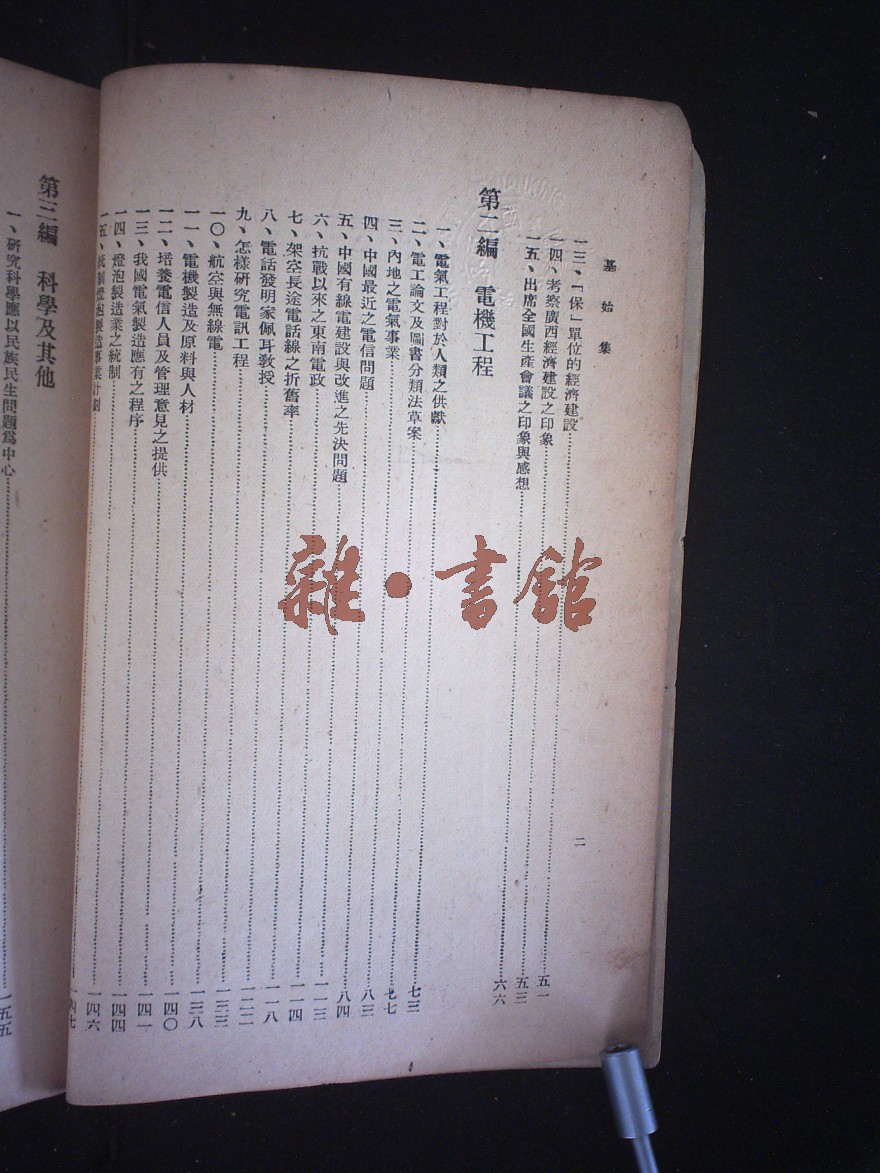 基始集
一三、「保」單位的經濟建設……五一
一四、考察廣西經濟建設之印象……五三
一五、出席全國生產會議之印象與感想……六六
第二編 電機工程
一、電氣工程對於人類之供獻……七三
二、電工論文及圖書分類法草案……七七
三、內地之電氣事業……八三
四、中國最近之電信問題……八四
五、中國有線電建設與改進之先決問題……一一三
六、抗戰以來之東南電政……一一四
七、架空長途電話線之折舊率……一一八
八、電話發明家佩耳教授……一二二
九、怎樣研究電訊工程……一三三
一〇、航空與無線電……一三八
一一、電機製造及原料與人材……一四〇
一二、培養電信人員及管理意見之提供……一四一
一三、我國電氣製造應有之程序……一四四
一四、燈泡製造業之統制……一四六
一五、統制燈泡製造事業計劃……一四七
二
第三編 科學及其他
一、研究科學應以民族民生問題爲中心……一五五
雜·書館